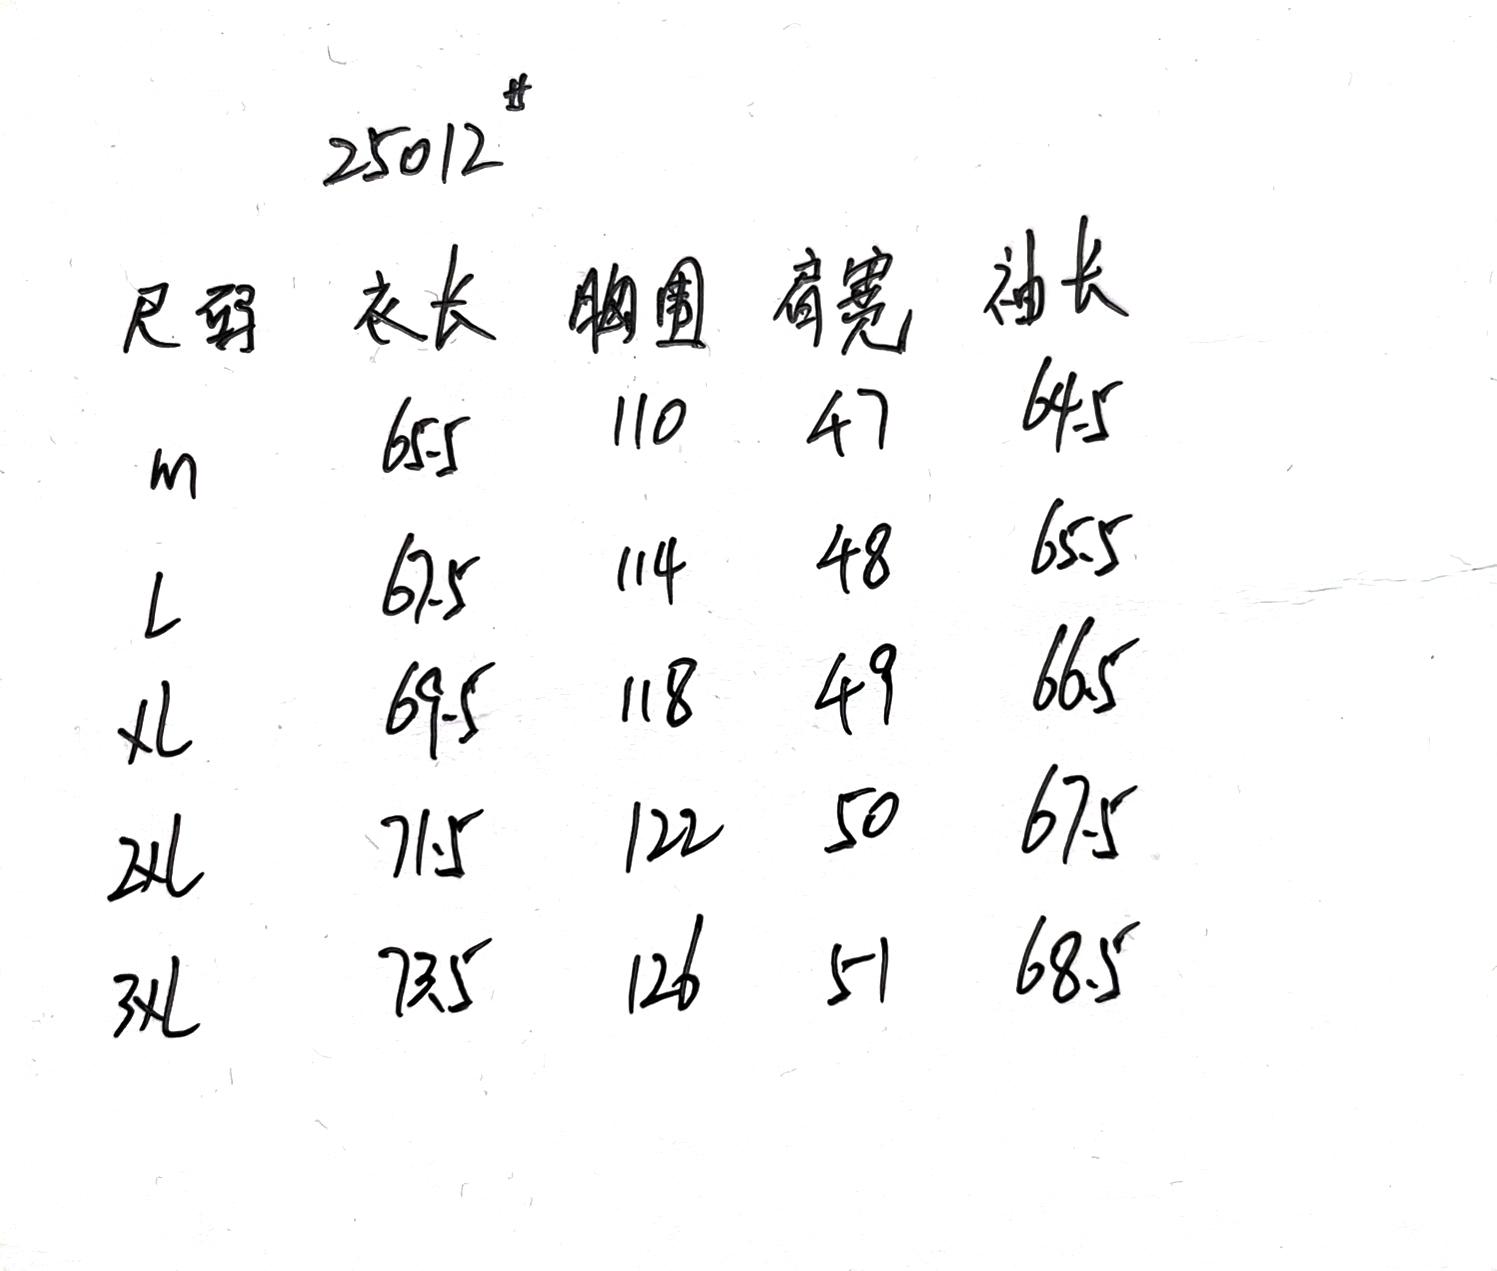 25012#
尺码 衣长 胸围 肩宽 袖长
m 65.5 110 47 64.5
L 67.5 114 48 65.5
XL 69.5 118 49 66.5
2XL 71.5 122 50 67.5
3XL 73.5 126 51 68.5